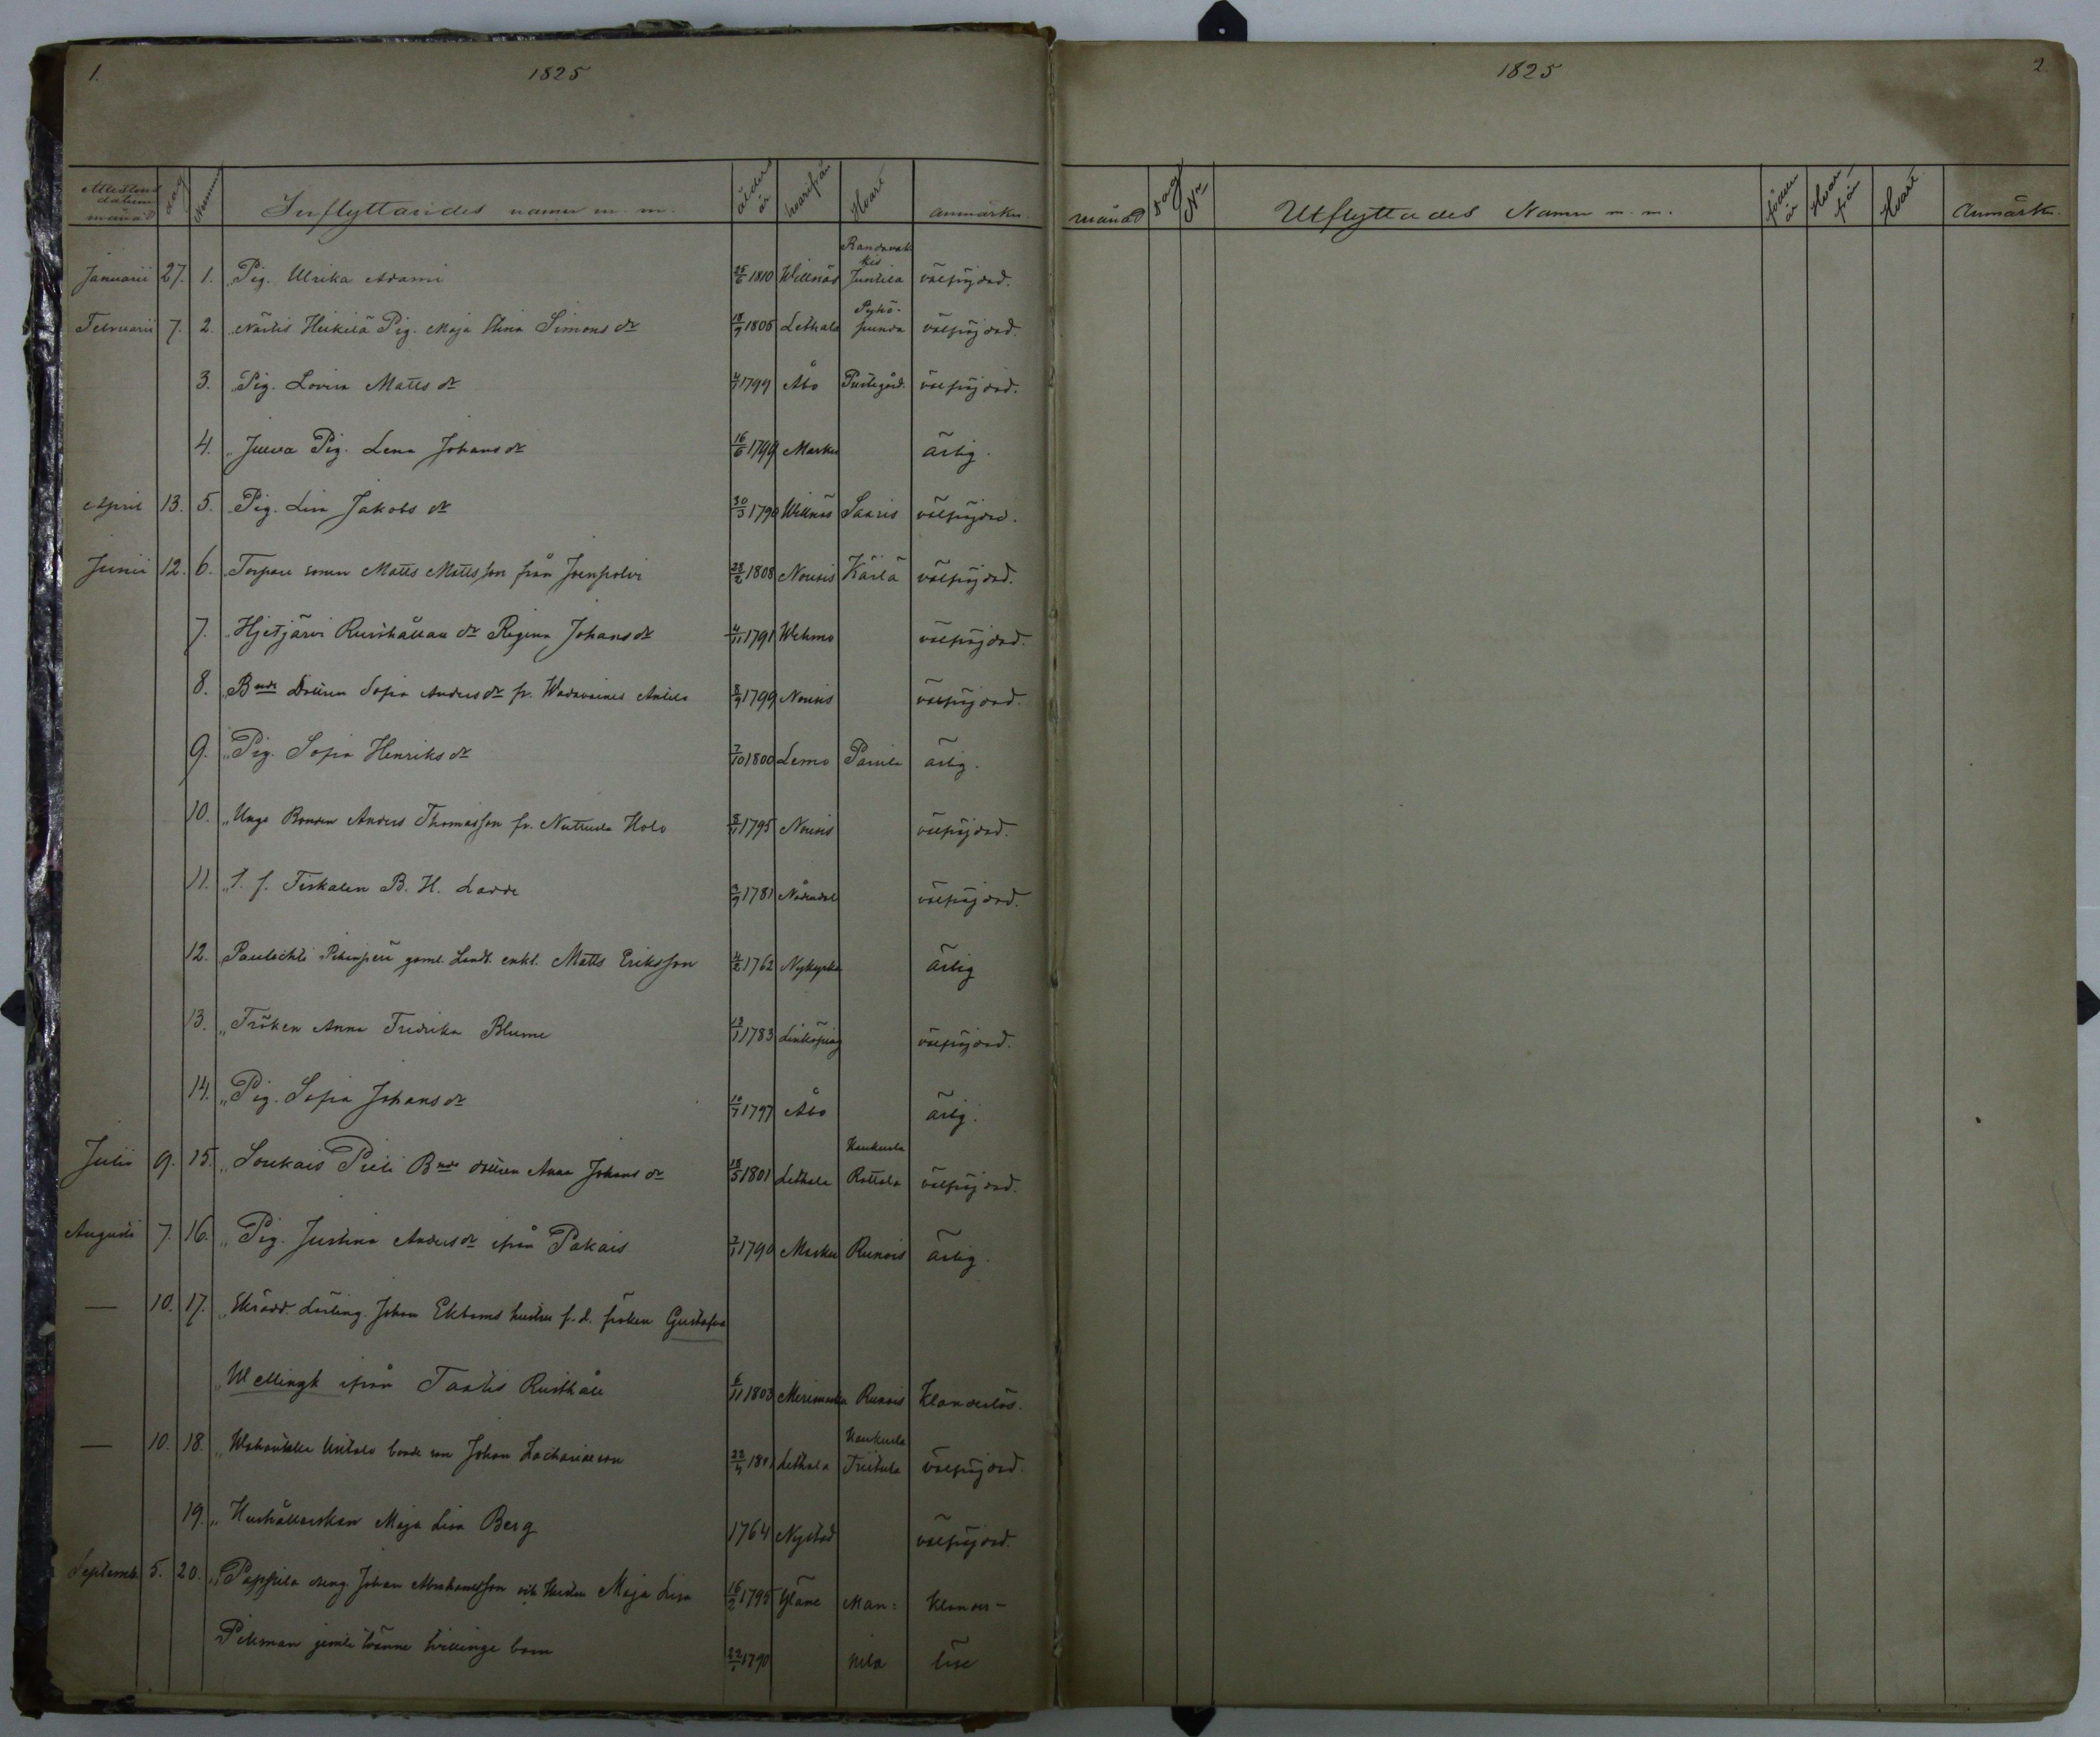 1.
1825
Attestens datum månad
dag
Nummer
Inflyttandes namn m. m.
ålder år
hvarifrån
Hvart
anmärkn.
Januarii 27. 1. Pig. Ulrika Adami 25/6 1810 Willnäs Randamäkis Junttila välfrejdad.
Februarii 7. 2. Nästis Heikilä Pig. Maja Stina Simons dr 18/9 1805 Lethala Pyhö- välfrejdad.
3. Pig. Lovisa Matts dr 4/1 1799 Åbo Prästegård. välfrejdad.
4. Juva Pig. Lena Johans dr 16/6 1799 Masku ärlig.
April 13. 5. Pig. Lisa Jakobs dr 30/3 1790 Willnäs Saaris välfrejdad.
Junii 12. 6. Torpare sonen Matts Mattsson från Joenpolvi 28/2 1808 Nousis Kärlä välfrejdad.
7. Hjetjärvi Rusthållare dr Regina Johans dr 4/11 1791 Wehmo välfrejdad.
8. Bnde Dottren Sofia Anders dr fr. Wadavaines Anttila 8/9 1799 Nousis välfrejdad.
9. Pig. Sofia Henriks dr 7/10 1800 Lemo ärlig.
10. Unge Bonden Anders Thomasson fr. Nuttuila Holo 8/11 1795 Nousis välfrejdad.
11. t. f. Fiskalen B. H. Ladde 3/9 1781 Nådendal välfrejdad.
12. gaml. Landt. enkl. Matts Eriksson 4/2 1762 Nykyrka ärlig
13. Fröken Anna Fredrika Blume 13/1 1783 Linköping välfrejdad.
14. Pig. Sofia Johans dr 10/7 1797 Åbo ärlig.
Julii 9. 15. Soukais Pieli Bnde dottren Anna Johans dr 18/5 1801 Lethala Kaukurla Rottola välfrejdad.
Augusti 7. 16. Pig. Justina Anders dr ifrån Pakais 7/1 1790 Masku Runois ärlig.
— 10. 17. Skrädd. Lärling. Johan Ekboms hustru f. d. fröken Gustafva
Wellingk ifrån Taatis Rusthåll 6/11 1803 Merimasku Runois Klanderlös.
— 10. 18. bonde son Johan Zachariason 22/4 1801 Lethala Kaukurla Triitula välfrejdad.
19. Hushållerskan Maja Lisa Berg 1764 Nystad välfrejdad.
Septemb. 5. 20. Pappila dreng. Johan Abrahamsson och Hustru Maja Lisa 16/2 1795 Yläne Man= klander-
Pihlman jemte tvänne tvillinge barn 1790 nila löse
1825
2
månad
dag
Nr
Utflyttades Namn m. m.
födelse år
Hvar-ifrån
Hvart
Anmärkn.